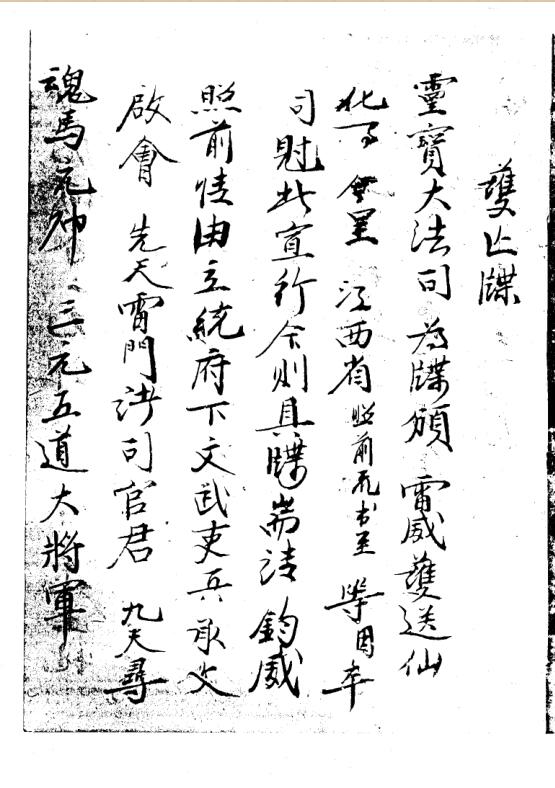 護亡牒
靈寶大法司 為牒頒 雷威護送仙
化事 照前 江西省 照前孔書至 等因奉
司尉此宣行合則具牒耑請 鈞威
照前情由立統府下文武吏兵承文
啟會 先天雷門法司官君 九天尋
魂馬元帥 三元五道大將軍